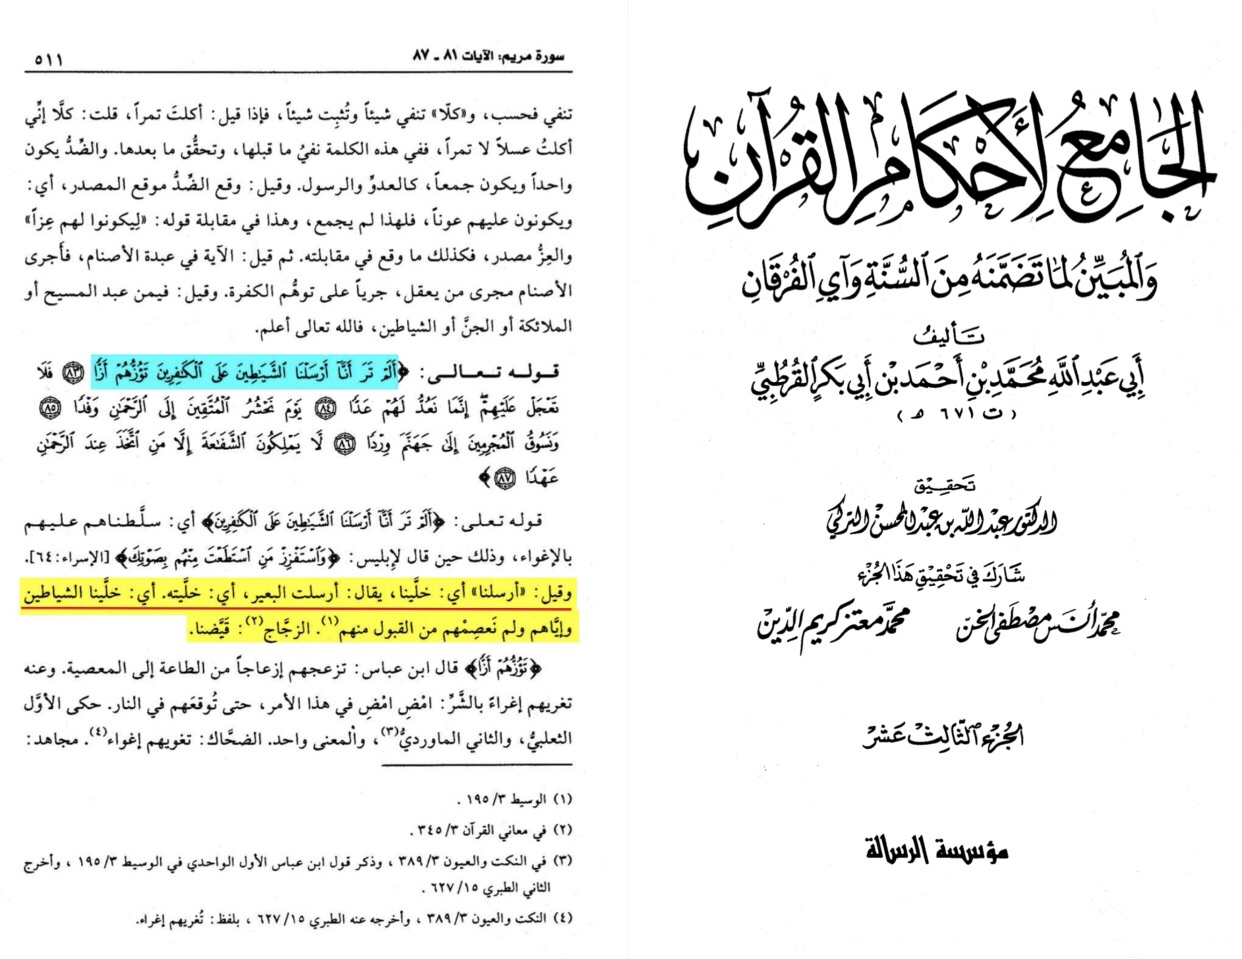 الجامع لأحكام القرآن
والمبين لما تضمنه من السنة وآي الفرقان
تأليف
أبي عبد الله محمد بن أحمد بن أبي بكر القرطبي
(ت ٦٧١ هـ)
تحقيق
الدكتور عبد الله بن عبد المحسن التركي
شارك في تحقيق هذا الجزء
محمد أنس مصطفى الخن محمد معتز كريم الدين
الجزء الثالث عشر
مؤسسة الرسالة
سورة مريم: الآيات ٨١ - ٨٧ ٥١١
تنفي فحسب، و«كلّا» تنفي شيئاً وتُثبِت شيئاً، فإذا قيل: أكلتَ تمراً، قلت: كلَّا إنّي
أكلتُ عسلاً لا تمراً، ففي هذه الكلمة نفيُ ما قبلها، وتحقُّق ما بعدها. والضِّدُّ يكون
واحداً ويكون جمعاً، كالعدوِّ والرسول. وقيل: وقع الضِّدُّ موقع المصدر، أي:
ويكونون عليهم عوناً، فلهذا لم يجمع، وهذا في مقابلة قوله: «لِيكونوا لهم عِزاً»
والعِزُّ مصدر، فكذلك ما وقع في مقابلته. ثم قيل: الآية في عبدة الأصنام، فأَجرى
الأصنام مجرى من يعقل، جرياً على توهُّم الكفرة. وقيل: فيمن عبد المسيح أو
الملائكة أو الجنَّ أو الشياطين، فالله تعالى أعلم.
قوله تعالى: ﴿أَلَمْ تَرَ أَنَّآ أَرْسَلْنَا ٱلشَّيَٰطِينَ عَلَى ٱلْكَٰفِرِينَ تَؤُزُّهُمْ أَزًّا ۝٨٣ فَلَا
تَعْجَلْ عَلَيْهِمْ إِنَّمَا نَعُدُّ لَهُمْ عَدًّا ۝٨٤ يَوْمَ نَحْشُرُ ٱلْمُتَّقِينَ إِلَى ٱلرَّحْمَٰنِ وَفْدًا ۝٨٥
وَنَسُوقُ ٱلْمُجْرِمِينَ إِلَىٰ جَهَنَّمَ وِرْدًا ۝٨٦ لَّا يَمْلِكُونَ ٱلشَّفَٰعَةَ إِلَّا مَنِ ٱتَّخَذَ عِندَ ٱلرَّحْمَٰنِ
عَهْدًا ۝٨٧﴾
قوله تعالى: ﴿أَلَمْ تَرَ أَنَّآ أَرْسَلْنَا ٱلشَّيَٰطِينَ عَلَى ٱلْكَٰفِرِينَ﴾ أي: سلَّطناهم عليهم
بالإغواء، وذلك حين قال لإبليس: ﴿وَٱسْتَفْزِزْ مَنِ ٱسْتَطَعْتَ مِنْهُم بِصَوْتِكَ﴾ [الإسراء:٦٤].
وقيل: «أرسلنا» أي: خلَّينا، يقال: أرسلت البعير، أي: خلَّيته. أي: خلَّينا الشياطين
وإيَّاهم ولم نَعصِمْهم من القبول منهم(١). الزجَّاج(٢): قَيَّضنا.
﴿تَؤُزُّهُمْ أَزًّا﴾ قال ابن عباس: تزعجهم إزعاجاً من الطاعة إلى المعصية. وعنه
تغريهم إغراءً بالشَّرِّ: امْضِ امْضِ في هذا الأمر، حتى تُوقعَهم في النار. حكى الأوَّل
الثعلبيُّ، والثاني الماورديُّ(٣)، والمعنى واحد. الضحَّاك: تغويهم إغواء(٤). مجاهد:
(١) الوسيط ٣/ ١٩٥ .
(٢) في معاني القرآن ٣/ ٣٤٥ .
(٣) في النكت والعيون ٣/ ٣٨٩ ، وذكر قول ابن عباس الأول الواحدي في الوسيط ٣/ ١٩٥ ، وأخرج
الثاني الطبري ١٥/ ٦٢٧ .
(٤) النكت والعيون ٣/ ٣٨٩ ، وأخرجه عنه الطبري ١٥/ ٦٢٧ ، بلفظ: تُغريهم إغراء.